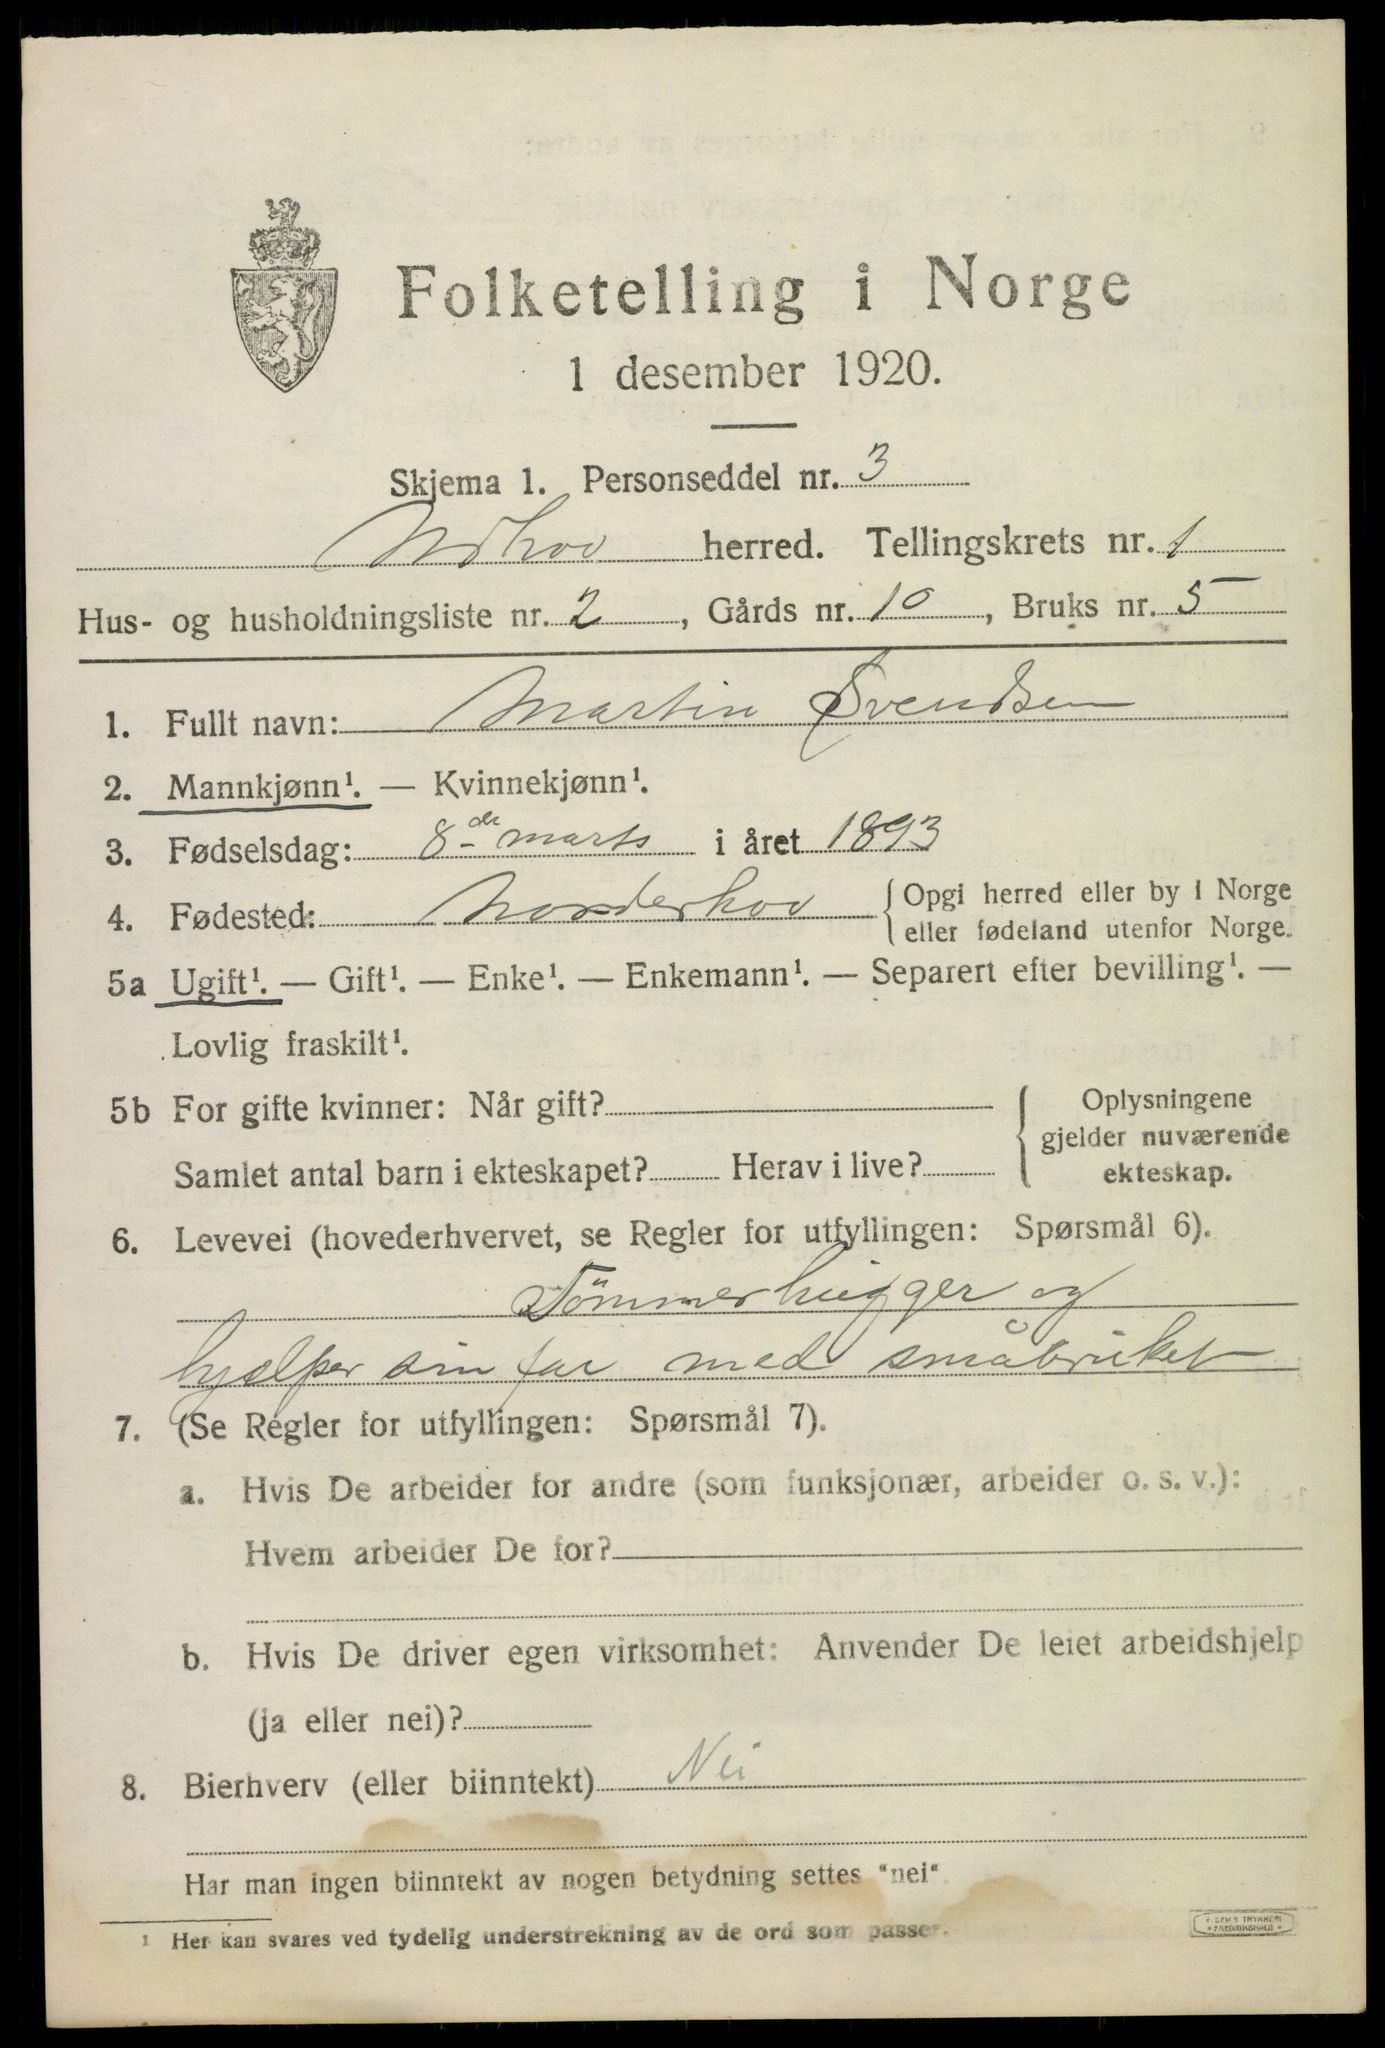 Folketelling i Norge
1 desember 1920.
Skjema 1. Personseddel nr. 3
herred. Tellingskrets nr. 1
Hus- og husholdningsliste nr. 2, Gårds nr. 10, Bruks nr. 5
1. Fullt navn: Martin Svendsen
2. Mannkjønn¹. — Kvinnekjønn¹.
3. Fødselsdag: 8de marts i året 1893
4. Fødested: Norderhov { Opgi herred eller by i Norge
eller fødeland utenfor Norge.
5a Ugift¹. — Gift¹. — Enke¹. — Enkemann¹. — Separert efter bevilling¹. —
Lovlig fraskilt¹.
5b For gifte kvinner: Når gift? { Oplysningene
gjelder nuværende
Samlet antal barn i ekteskapet? Herav i live? ekteskap.
6. Levevei (hovederhvervet, se Regler for utfyllingen: Spørsmål 6).
Tömmerhugger og
hjælper sin far med småbruket
7. (Se Regler for utfyllingen: Spørsmål 7).
a. Hvis De arbeider for andre (som funksjonær, arbeider o. s. v.):
Hvem arbeider De for?
b. Hvis De driver egen virksomhet: Anvender De leiet arbeidshjelp
(ja eller nei)?
8. Bierhverv (eller biinntekt) Nei
Har man ingen biinntekt av nogen betydning settes "nei"
¹ Her kan svares ved tydelig understrekning av de ord som passer.